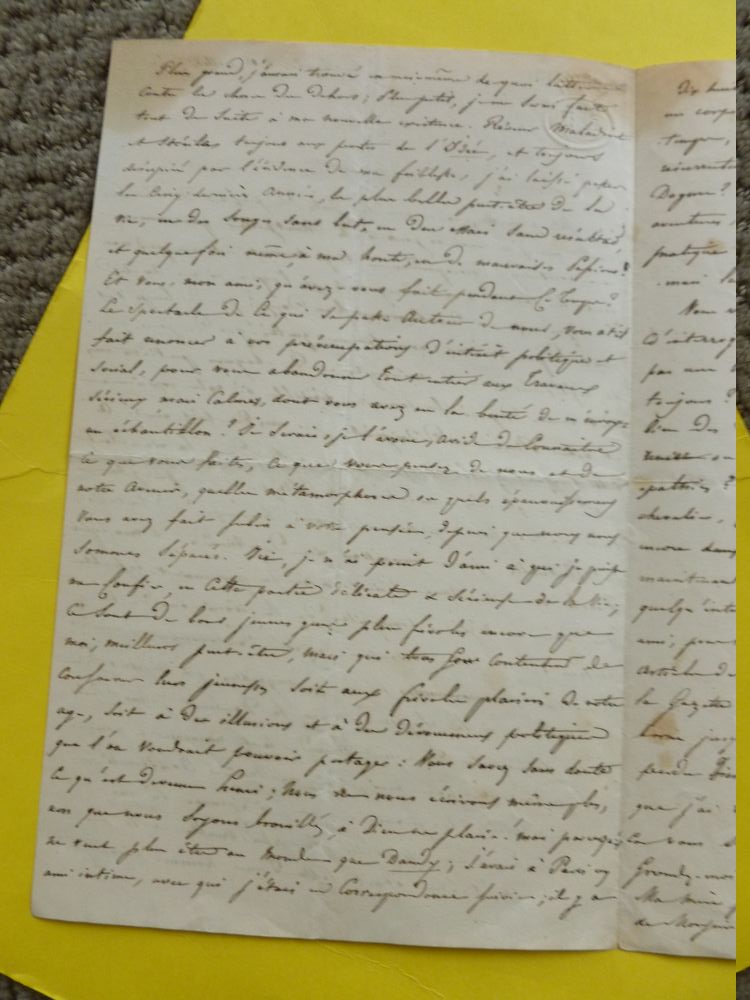 Plus grand, j'aurais trouvé en moi-même de quoi lutter
contre les choses du dehors; plus petit, je me serais fait
tout de suite à ma nouvelle existence. Rêveur maladroit
et stérile toujours aux portes de l'Idée, et toujours
par l'évidence de ma faiblesse, j'ai laissé passer
les cinq dernières années, les plus belles peut-être de la
vie, en des songes sans but, en des essais sans résultat,
et quelquefois même, à ma honte, en de mauvaises
Et vous, mon ami, qu'avez-vous fait pendant ce temps?
Le spectacle de ce qui se passe autour de nous, vous a-t-il
fait renoncer à vos préoccupations d'intérêt politique et
social, pour vous abandonner tout entier aux travaux
sérieux mais calmes, dont vous avez eu la bonté de m'envoyer
un échantillon? Je serais, je l'avoue, avide de connaître
ce que vous faites, ce que vous pensez de nous et de
notre avenir, quelles métamorphoses ou quels épanouissements
vous avez fait subir à votre pensée, depuis que nous nous
sommes séparés. Ici, je n'ai point d'ami à qui je puisse
me confier, en cette partie délicate & sérieuse de la vie;
ce sont de bons jeunes gens plus frivoles encore que
moi, meilleurs peut-être, mais qui tous sont contents de
consacrer leur jeunesse soit aux frivoles plaisirs de notre
âge, soit à des illusions et à des dévouements politiques
que l'on voudrait pouvoir partager: Vous savez sans doute
ce qu'est devenu Henri; nous ne nous écrivons même plus,
non que nous soyons brouillés, à Dieu ne plaise! mais parce qu'il
ne veut plus être au monde que Dandy; j'avais à Paris un
ami intime, avec qui j'étais en correspondance suivie; il y a
Dix huit
un corps
temps,
Dogme?
aventures
pratique
mais
Nous
D'interrog
par un
toujours?
Un des
chevalier,
encore dans
maintenant
quelqu'
ami, pour
articles de
la Gazette
perdu
que j'ai
vous
Grondez-moi
Ma mère
de